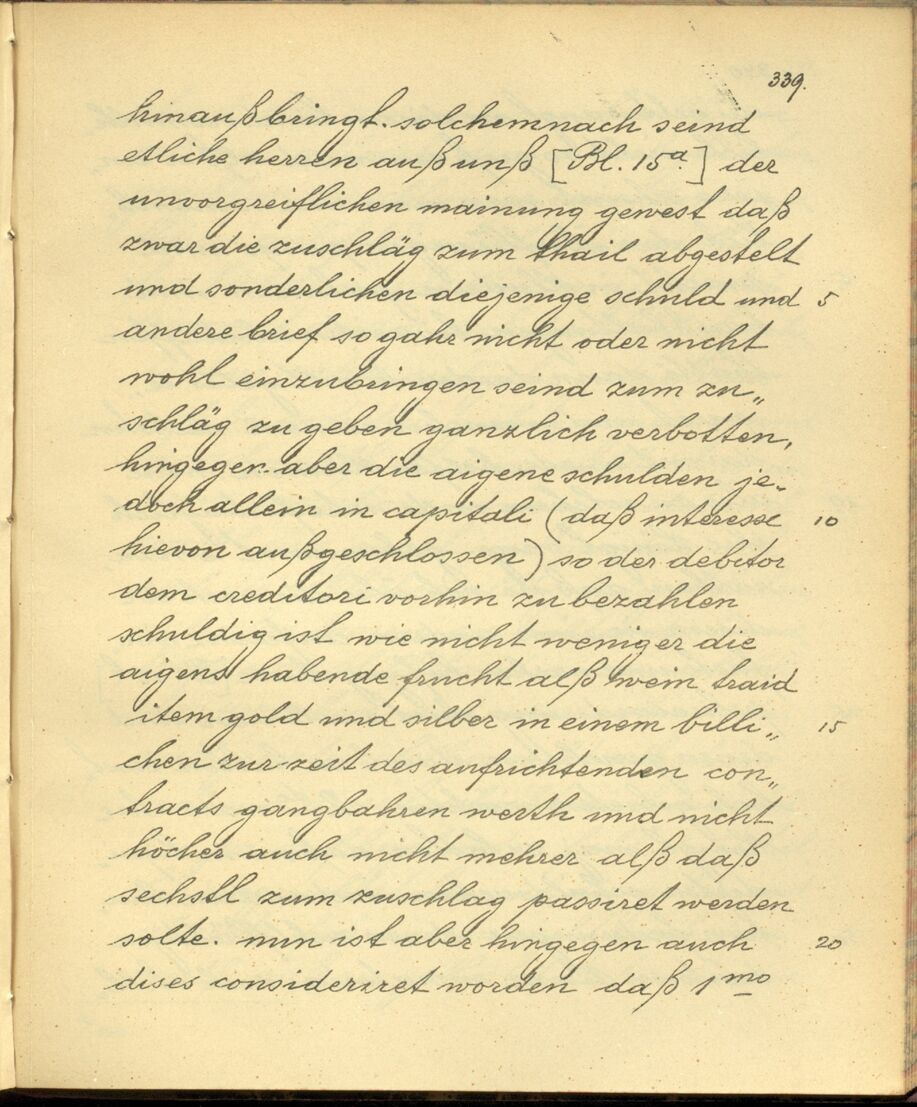 339.
hinaußbringt. solchemnach seind
etliche herren auß unß [Bl. 15a.] der
unvorgreiflichen mainung gewest daß
zwar die zuschläg zum thail abgestelt
und sonderlichen diejenige schuld und 5
andere brief so gahr nicht oder nicht
wohl einzubringen seind zum zu„
schläg zu geben ganzlich verbotten,
hingegen aber die aigene schulden je-
doch allein in capitali (daß interesse 10
hievon außgeschlossen) so der debitor
dem creditori vorhin zu bezahlen
schuldig ist wie nicht weniger die
aigens habende frucht alß wein traid
item gold und silber in einem billi„ 15
chen zur zeit des aufrichtenden con„
tracts gangbahren werth und nicht
höcher auch nicht mehrer alß daß
sechstl zum zuschlag passiret werden
solte. nun ist aber hingegen auch 20
dises consideriret worden daß 1mo